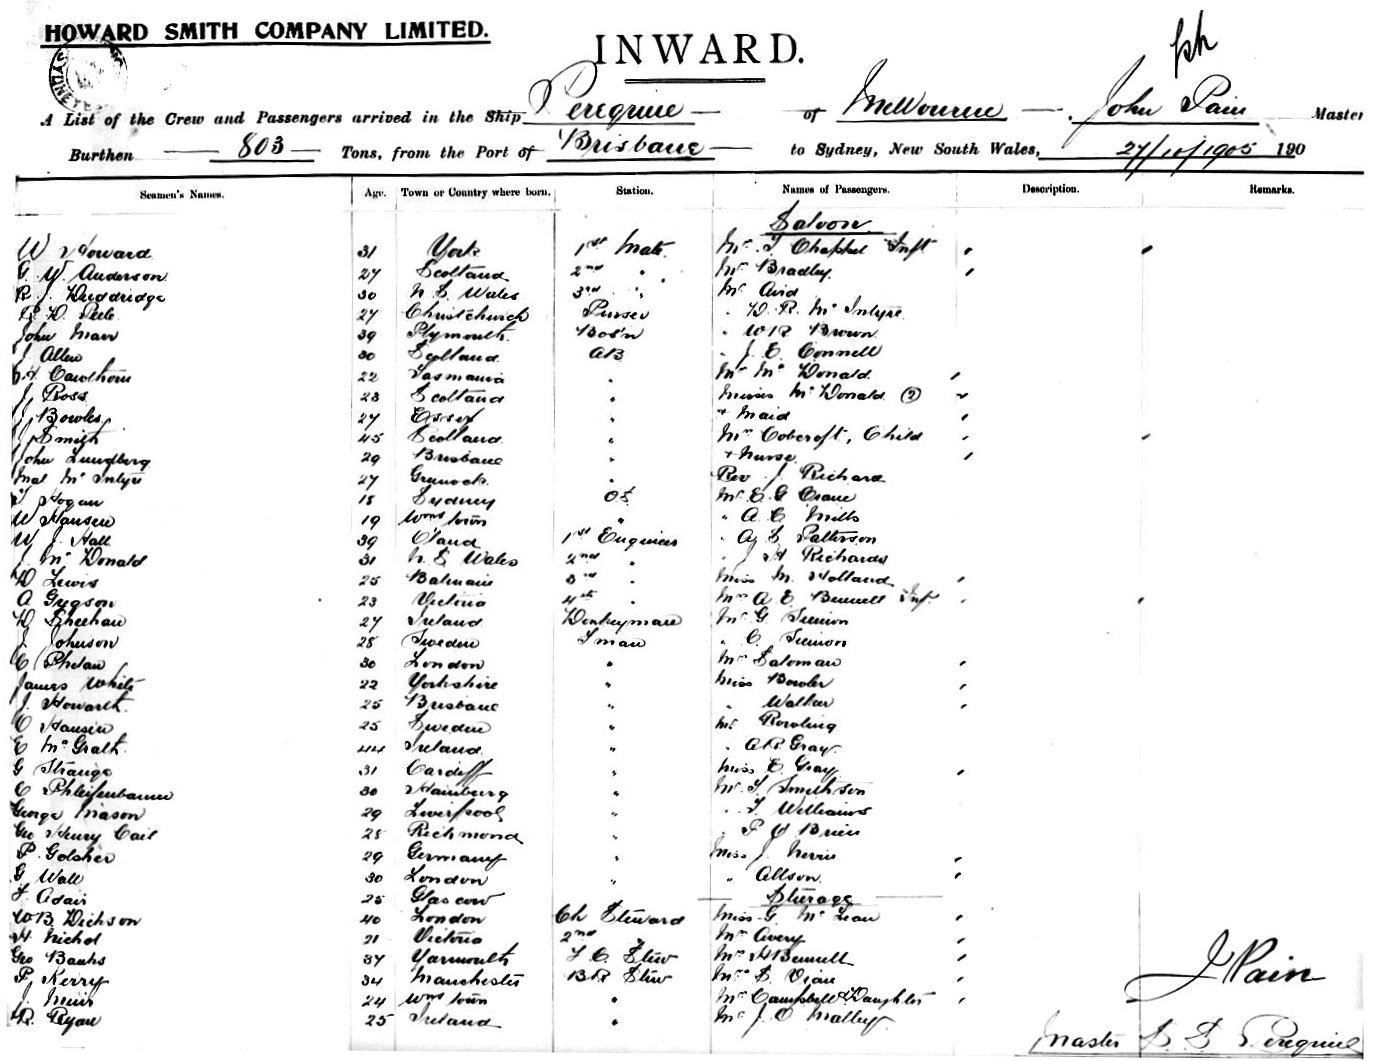 HOWARD SMITH COMPANY LIMITED.
INWARD.
A List of the Crew and Passengers arrived in the Ship Peregrine of Melbourne, John Pain Master
Burthen 803 Tons, from the Port of Brisbane to Sydney, New South Wales, 27/10/1905 190
Seamen's Names. Age. Town or Country where born. Station. Names of Passengers. Description. Remarks.
Saloon
W Howard 31 York 1st Mate Mr T Chappel Inft
G. W. Anderson 27 Scotland 2nd " Mr Bradley
R J Duddridge 30 N S Wales 3rd " Mr
27 Christchurch Purser " D. R. McIntyre
John Marr 39 Plymouth Bos'n " W R Brown
J Allen 30 Scotland AB " J. E. Connell
Cawthorn 22 Tasmania " Mrs McDonald
J Ross 23 Scotland " Misses McDonald (2)
J Bowles 27 Essex " + Maid
J Smith 45 Scotland " Mrs Cobcroft, Child
John Lundberg 29 Brisbane " + Nurse
Mal McIntyre 27 Greenock " Rev J. Richard
T Hogan 18 Sydney OS Mr E G Crane
W Hansen 19 Wms town " " A E Mills
W J. Hall 39 Q'land 1st Engineer " A. S. Patterson
J. McDonald 31 N. S Wales 2nd " " J H Richards
D Lewis 25 Balmain 3rd " Miss M. Holland
A Gygson 23 Victoria 4th " Mrs A E Bunnell Inf.
D Sheehan 27 Ireland Donkeyman Mr G
J Johnson 28 Sweden Fman " C.
C Phelan 30 London " Mrs Saloman
James White 22 Yorkshire " Miss Bowler
J. Howarth 25 Brisbane " " Walker
C Hansen 25 Sweden " Mr Rowling
E McGrath 44 Ireland " " A R Gray
G Strange 31 Cardiff " Miss E Gray
C Phleifenbaum 30 Hamburg " Mr T Smithson
George Mason 29 Liverpool " " T Williams
Geo Henry Cail 28 Richmond " " P O'Brien
P. Golsher 29 Germany " Miss J. Nevin
G Wall 30 London " " Allson
F Adair 25 Glascow Steerage
W B. Dickson 40 London Ch Steward Miss G McLean
H Nichol 21 Victoria 2nd " Mrs Avery
Geo Banks 37 Yarmouth F. C. Stew Mrs H Bennell
P. Kerry 34 Manchester B R Stew Mrs S. Vian
J. Muir 24 Wms town " Mrs Campbell & Daughter
R. Ryan 25 Ireland " Mr J. O Malley
J Pain
Master S. S Peregrine